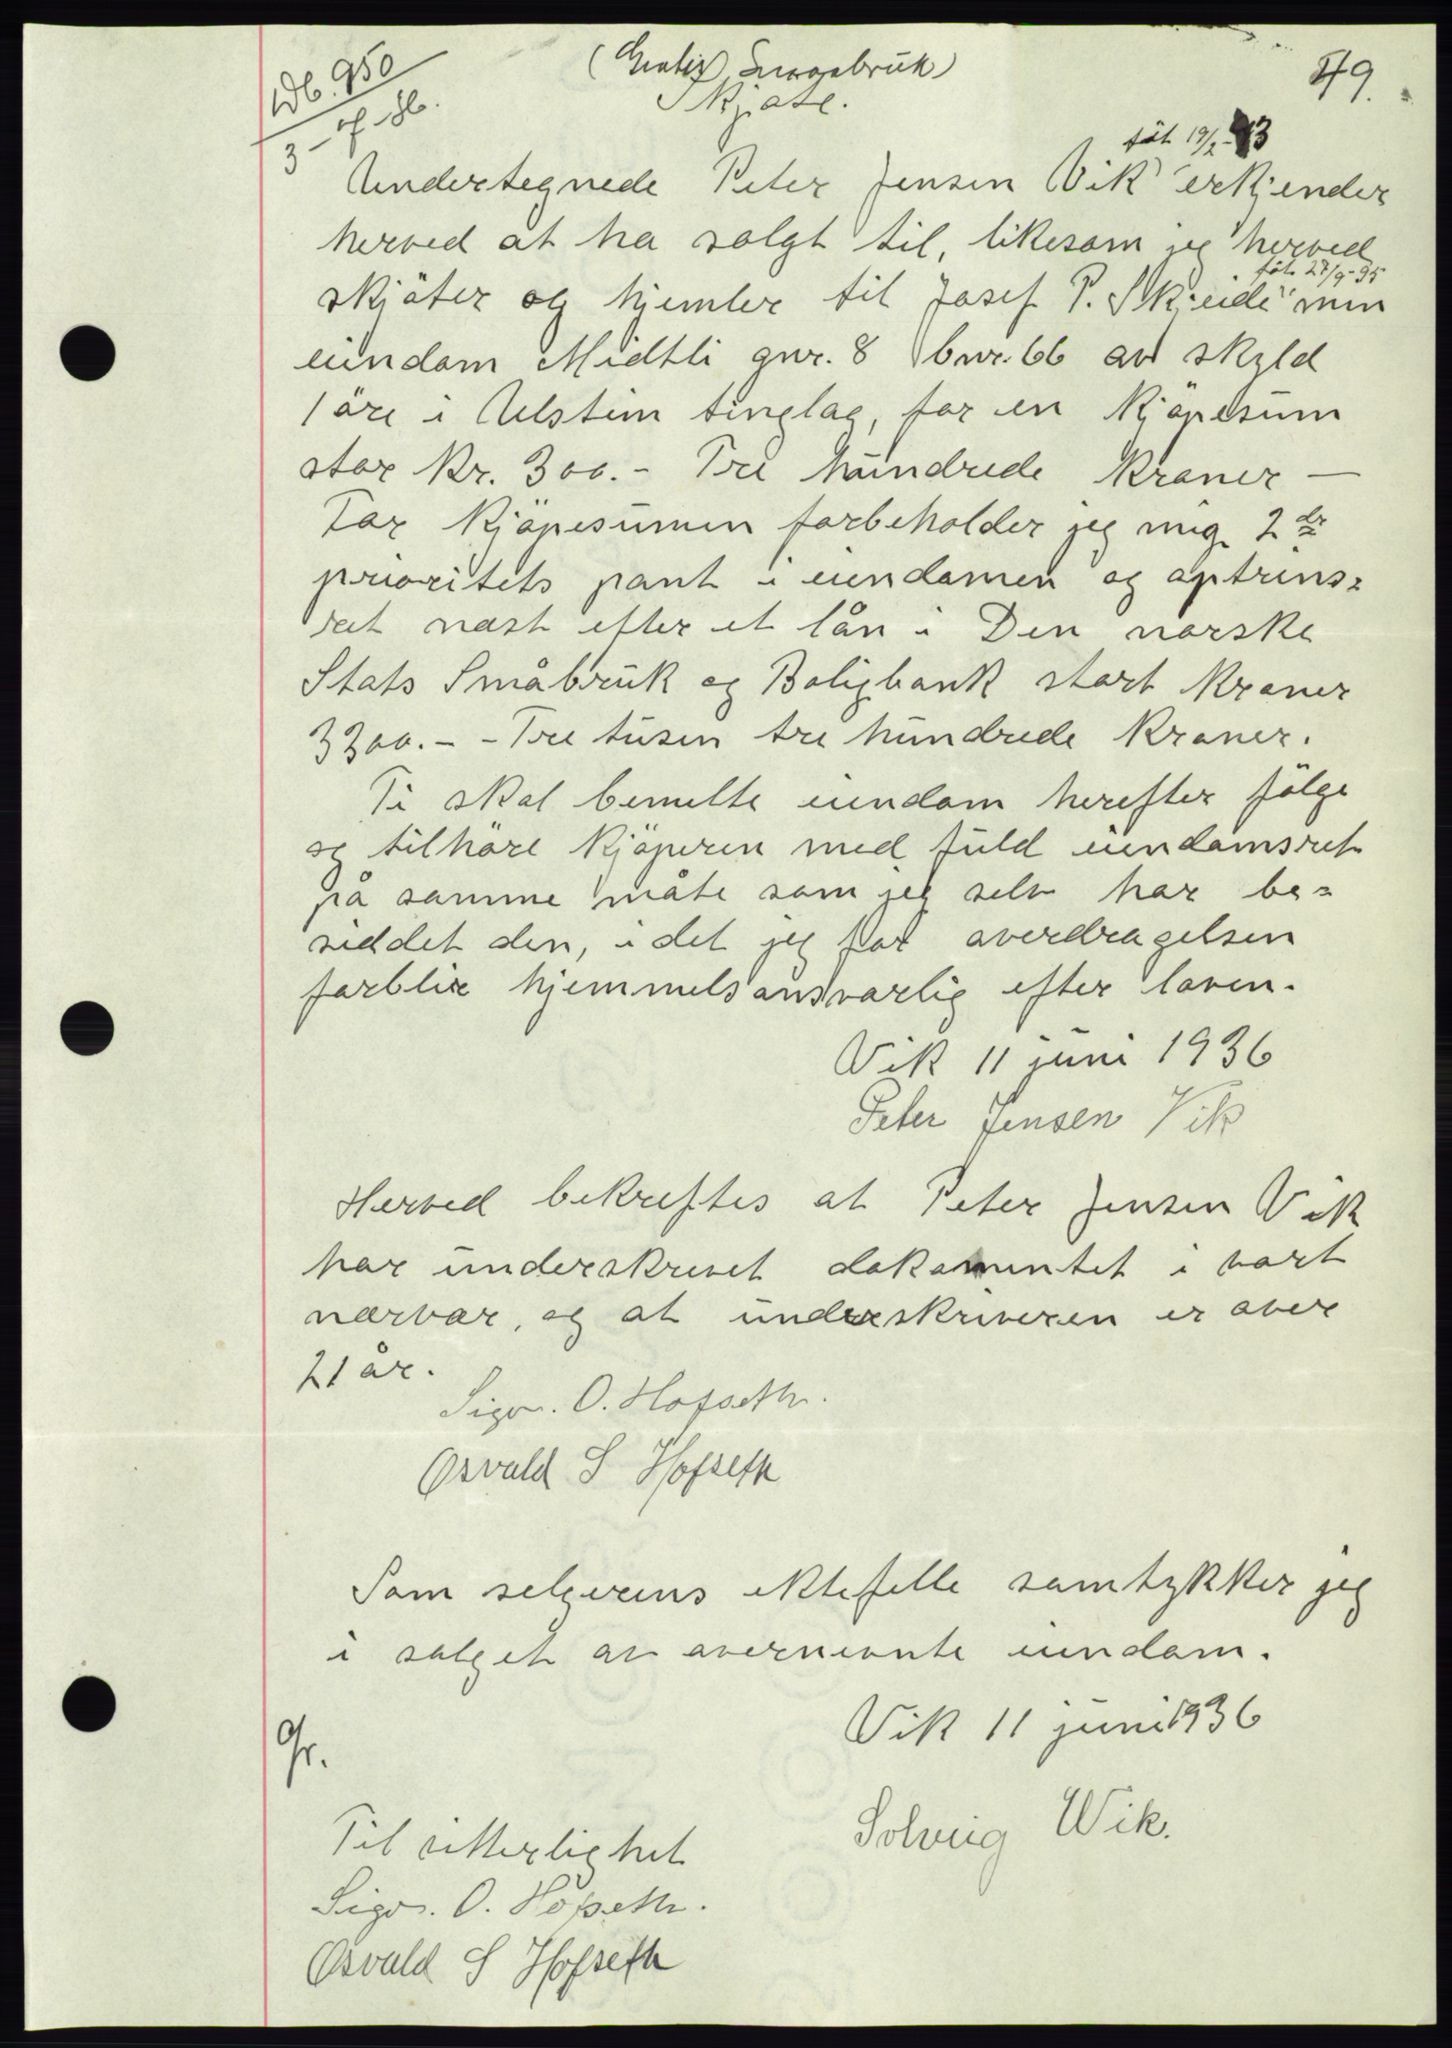 (Gratis, Småbruk)
49.
Db. 950
3 - 7/ 36.
Skjøte.
föt 19/2-93
Undertegnede Peter Jensen Vik erkjender
herved at ha solgt til, likesom jeg herved
föt 27/9-95
skjöter og hjemler til Josef P. Skeide min
eiendom Midtli gnr. 8 bnr. 66 av skyld
1 öre i Ulstein tinglag, for en kjöpesum
stor Kr. 300.- Tre hundrede kroner —
For kjöpesumen forbeholder jeg mig 2dr
prioritets pant i eiendomen og optrins=
ret næst efter et lån i Den norske
Stats Småbruk og Boligbank stort kroner
3300.- - Tre tusen tre hundrede kroner.
Ti skal bemelte eiendom herefter fölge
og tilhöre kjöperen med fuld eiendomsret
på samme måte som jeg selv har be=
siddet den, i det jeg for overdragelsen
forblir hjemmelsansvarlig efter loven.
Vik 11 juni 1936
Peter Jensen Vik
Herved bekreftes at Peter Jensen Vik
har underskrevet dokumentet i vort
nærvær, og at underskriveren er over
21 år.
Sigv. O. Hofseth.
Osvald S Hofseth
Som selgerens ektefelle samtykker jeg
i salget av overnevnte eiendom.
Vik 11 juni 1936
Gr.
Solveig Wik.
Til vitterlighet
Sigv. O. Hofseth.
Osvald S Hofseth